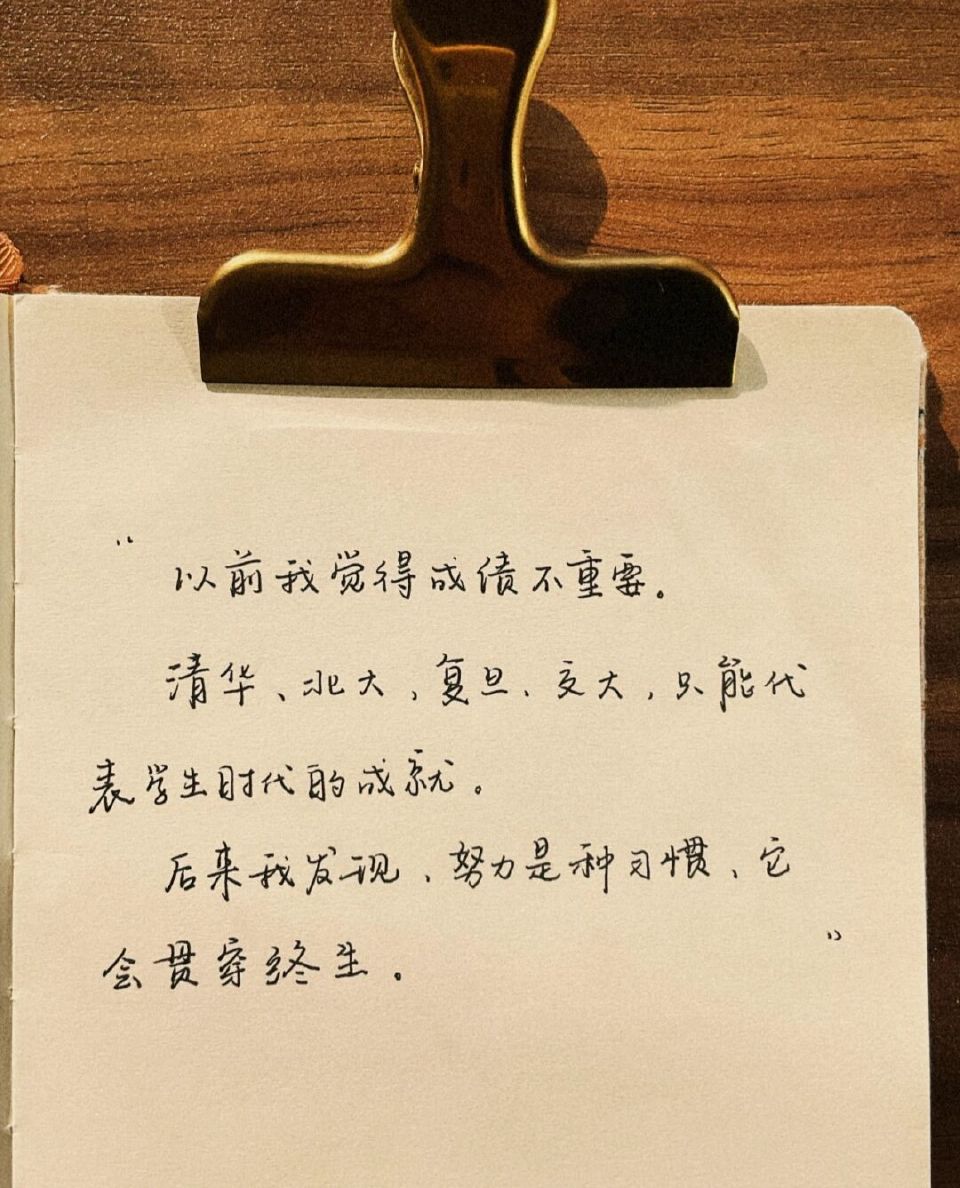 “以前我觉得成绩不重要。
清华、北大，复旦、交大，只能代
表学生时代的成就。
后来我发现，努力是种习惯，它
会贯穿终生。”